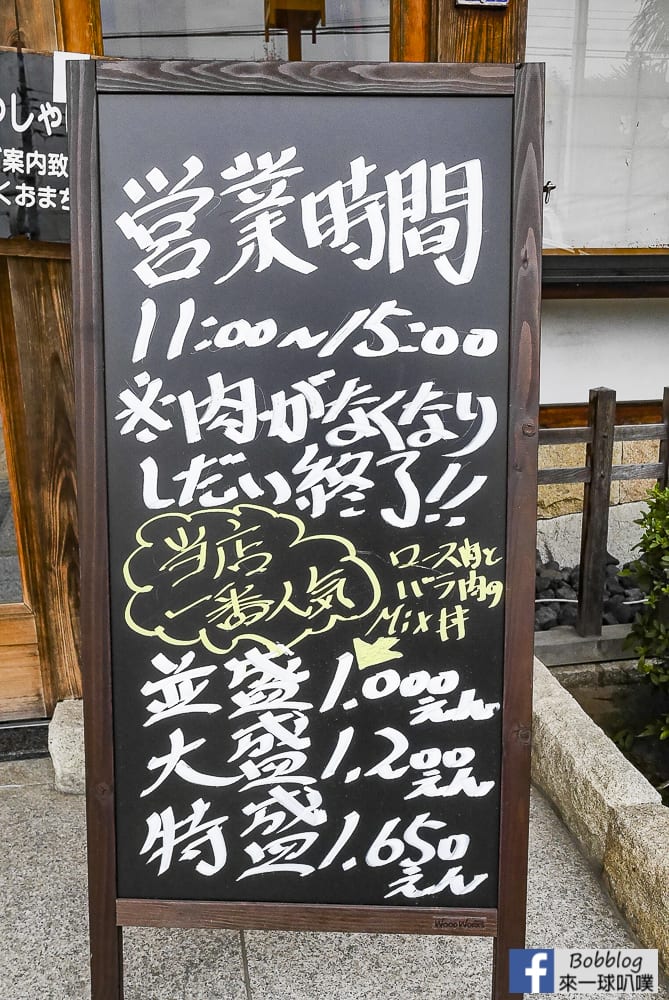 のしゃ
案内致
くおまち
営業時間
11:00~15:00
※肉がなくなり
しだい終了!!
当店
一番人気
ロース肉と
バラ肉の
Mix丼
並盛 1,000えん
大盛 1,200えん
特盛 1,650えん
WOOD WORKS
Bobblog
來一球叭噗